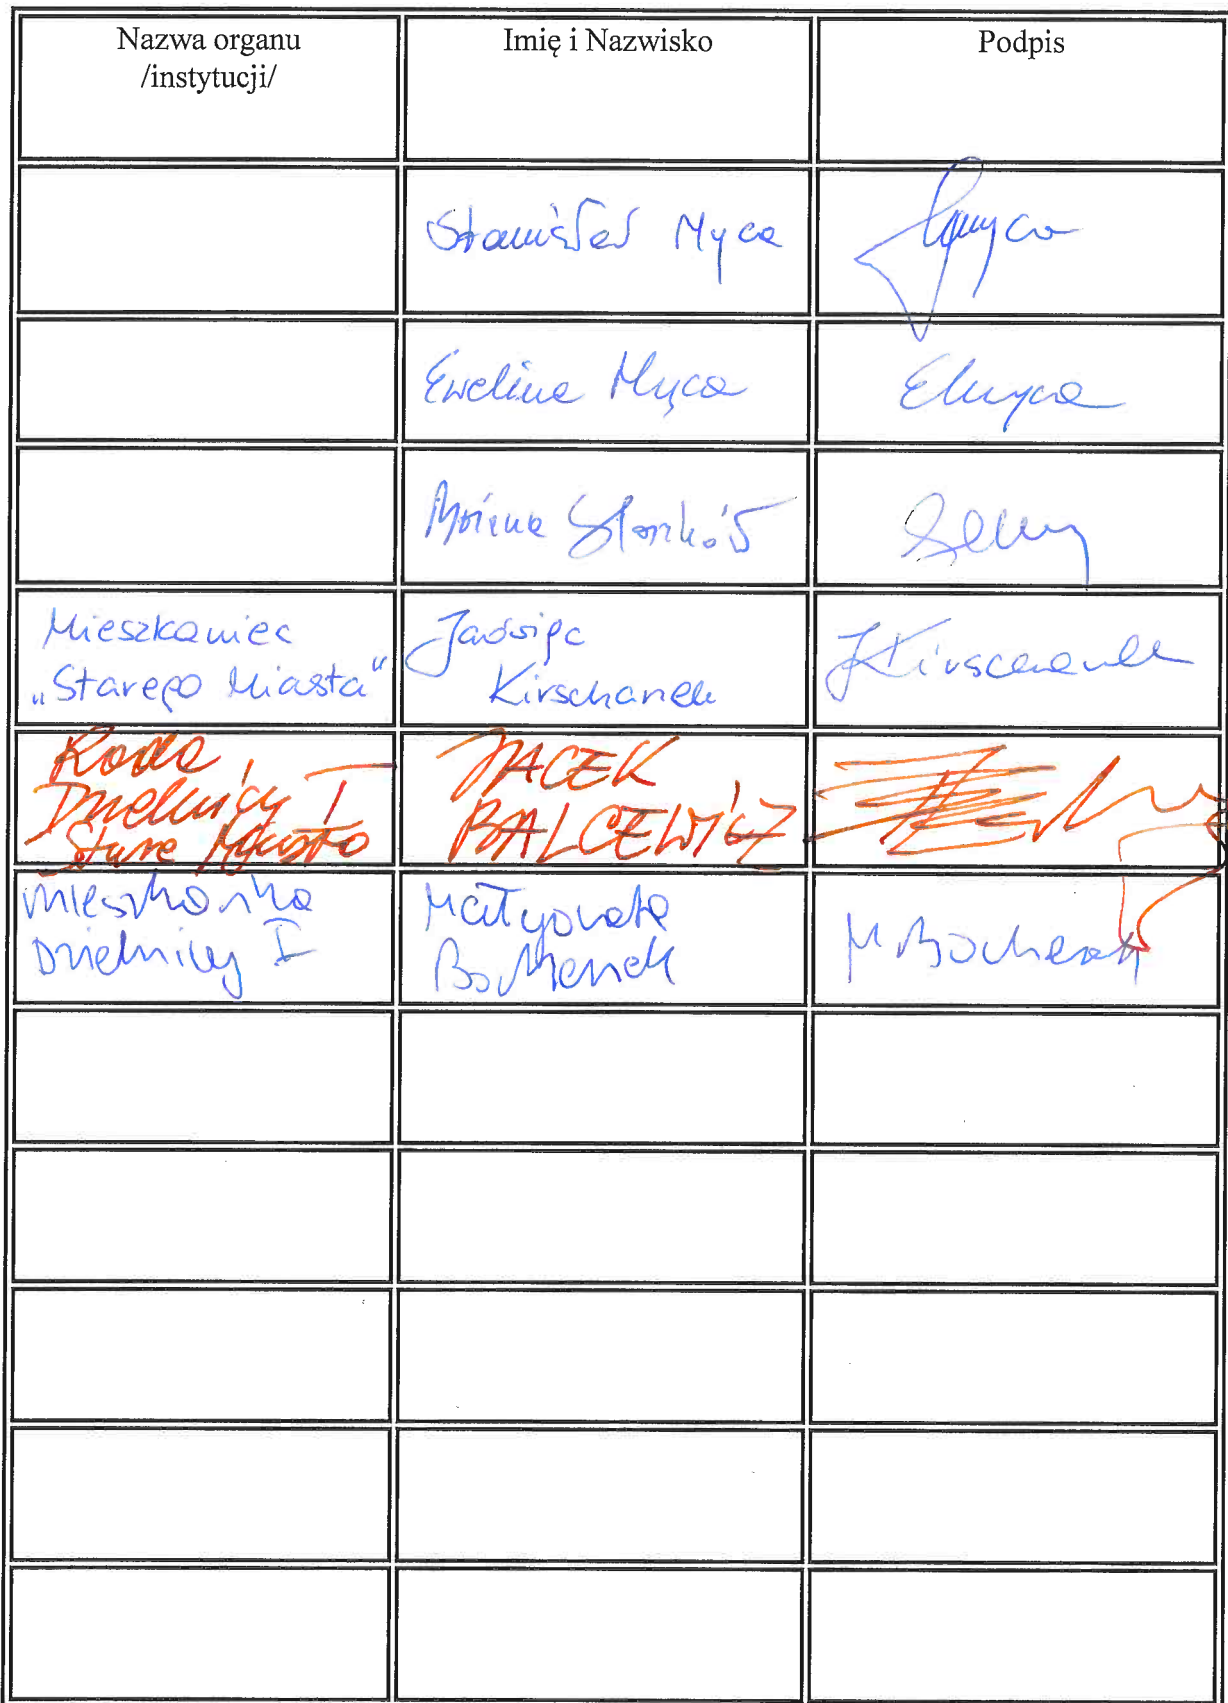 Nazwa organu
/instytucji/
Imię i Nazwisko
Podpis
Stanisław Myca
Ewelina Myca
Emyca
Mieszkaniec
„Starego Miasta"
Jadwiga
Kirschanek
JKirschanek
Rada
Dzielnicy I
Stare Miasto
JACEK
BALCEWICZ
mieszkanka
Dzielnicy I
Małgorzata
Bochenek
MBochenek